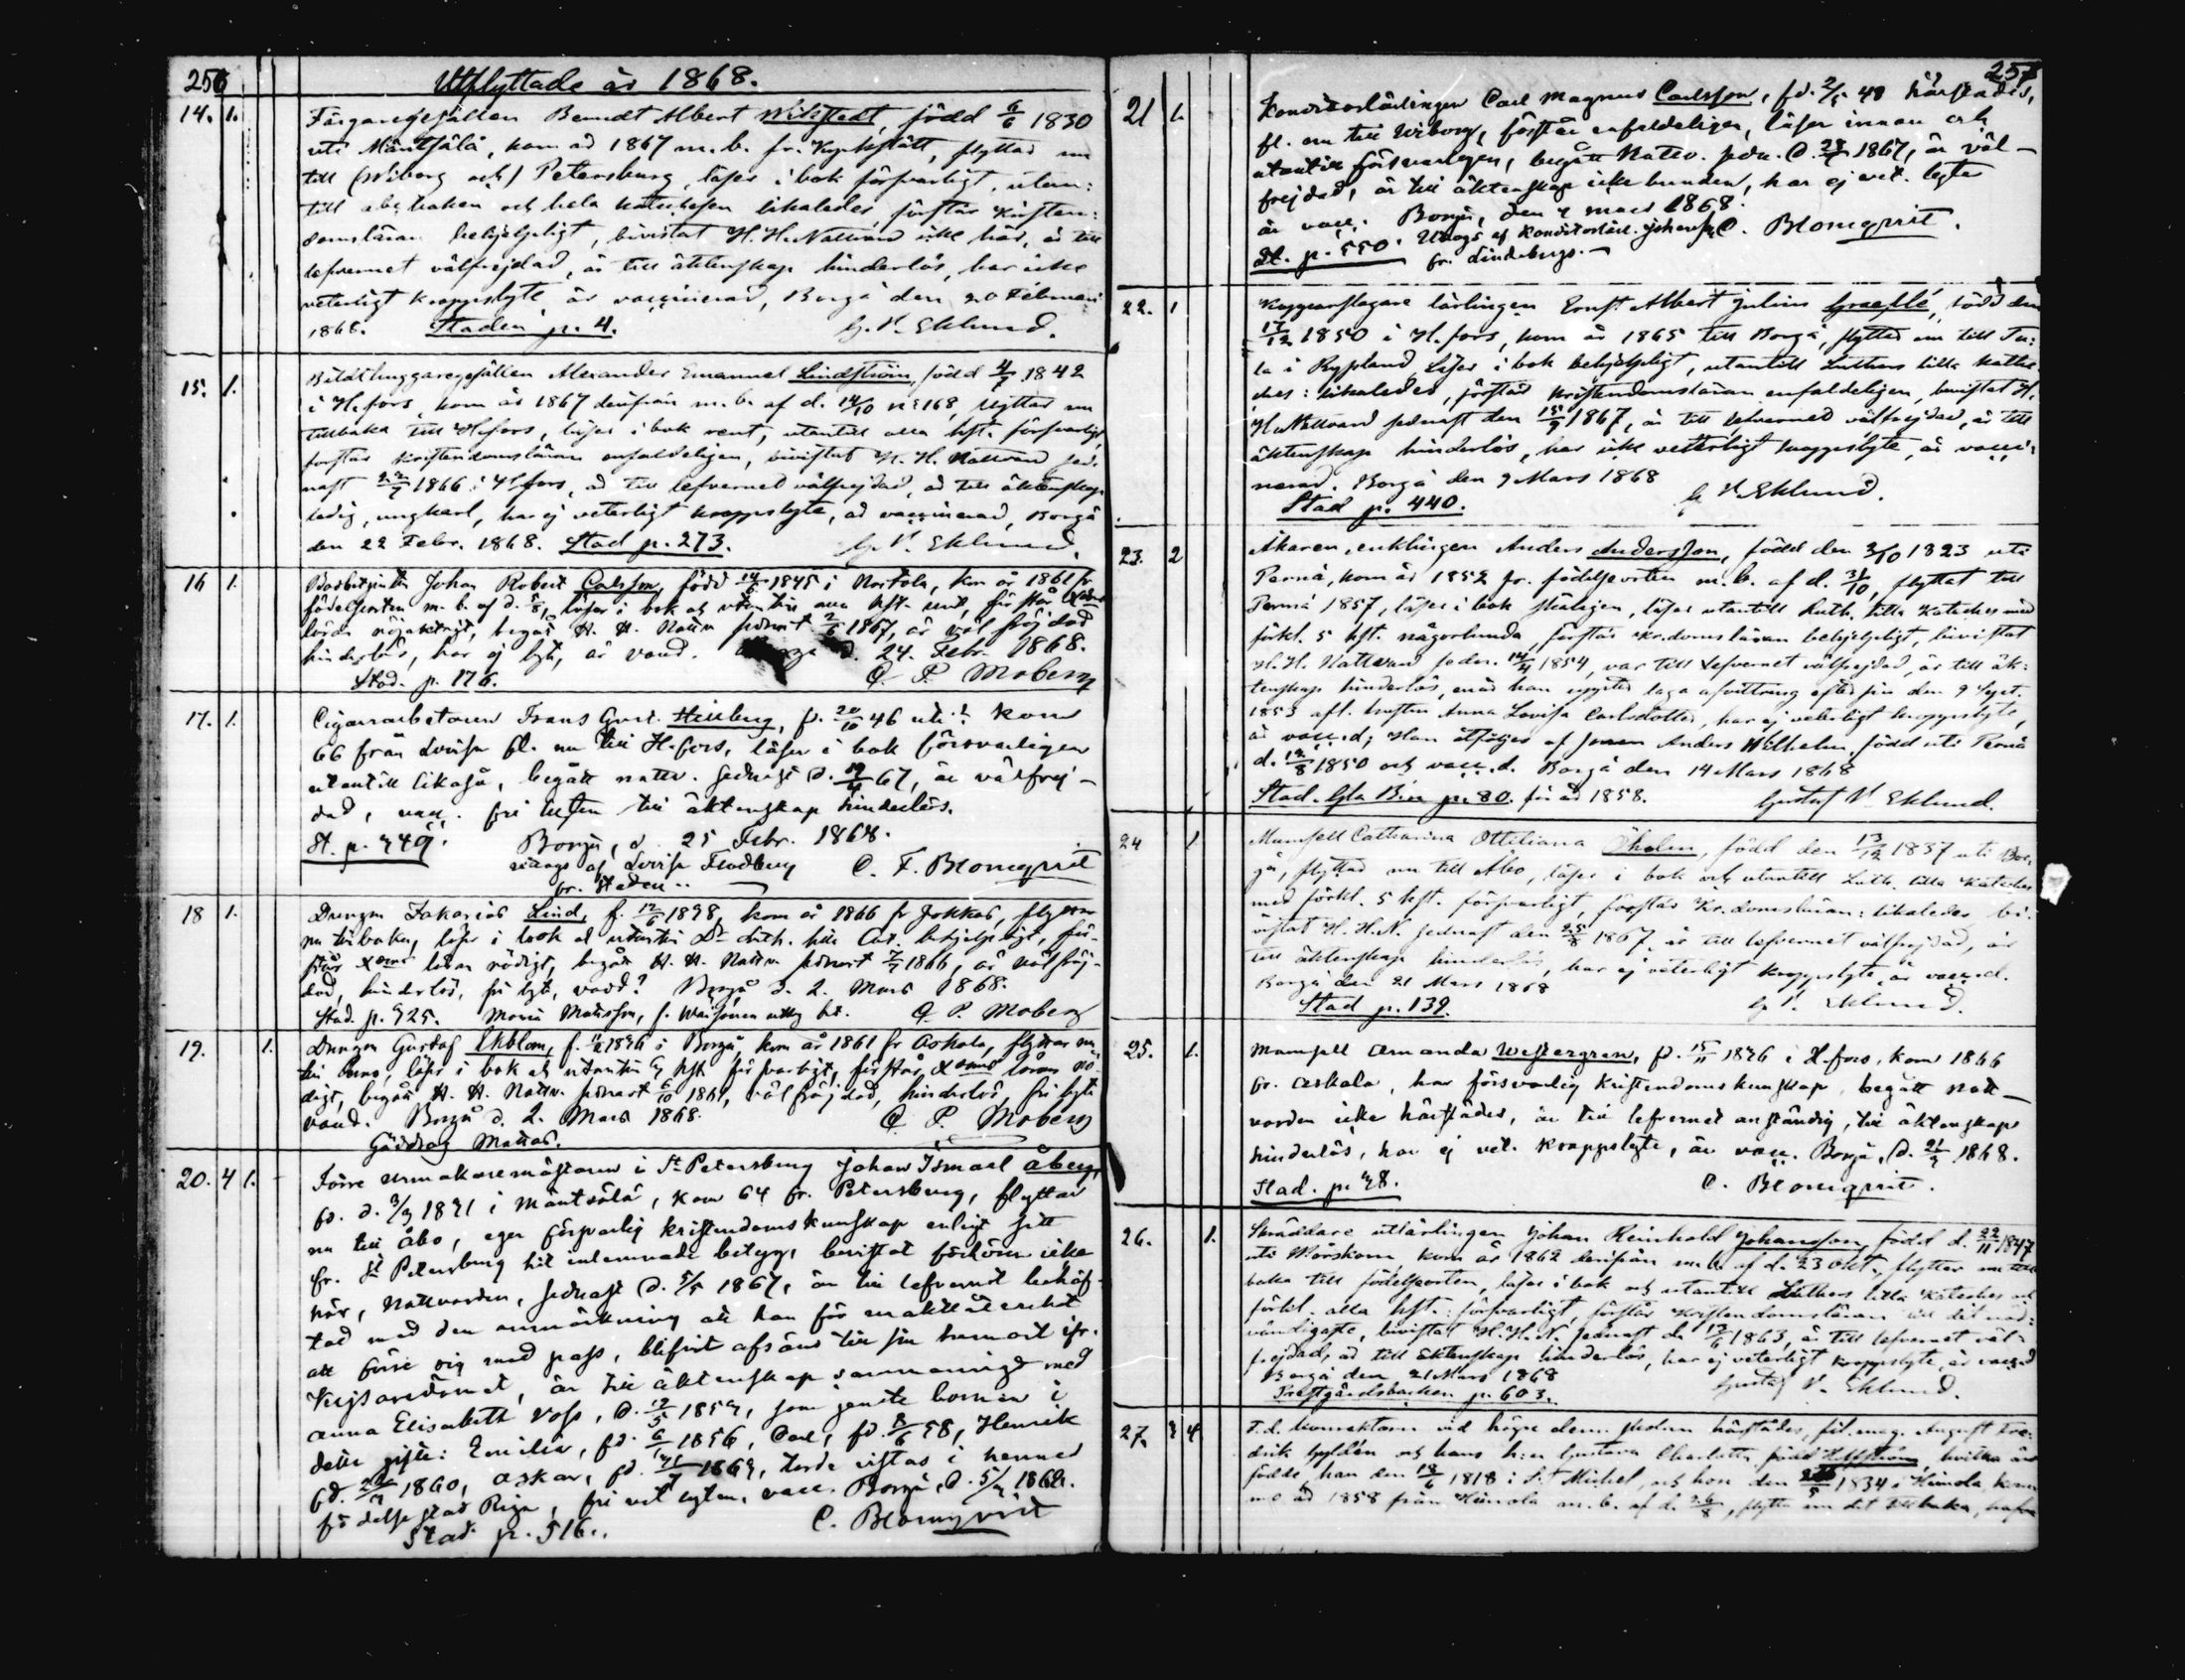 256
Utflyttade år 1868.
14. 1. Färgaregesällen Berndt Albert Wikstedt, född 6/6 1830
uti Mäntsälä, kom år 1867 m. b. fr. Kyrkslätt, flyttar nu
till (Wiborg och) Petersburg, läser i bok försvarligt, utan:
till abc boken och hela katechesen likaledes, förstår kristen:
domsläran behjelpligt, bivistat H. H. Nattvard icke här, är till
lefvernet välfrejdad, är till äktenskap hinderlös, har icke
veterligt kroppslyte, är vaccinerad, Borgå den 20 Februari
1868. Staden p. 4. G. V. Eklund.
15. 1. Bildthuggaregesällen Alexander Emanuel Lindström, född 4/7 1842
i H.fors, kom år 1867 derifrån m. b. af d. 14/10 No 168, flyttar nu
tillbaka till H.fors, läser i bok rent, utantill alla hft. försvarligt,
förstår kristendomsläran enfaldeligen, bivistat H. H. Nattvard sed-
nast 22/7 1866 i H.fors, är till lefvernet välfrejdad, är till äktenskap
ledig, ungkarl, har ej veterligt kroppslyte, är vaccinerad, Borgå
den 22 Febr. 1868. Stad p. 273. G. V. Eklund.
16 1. Johan Robert Carlsson, född 14/6 1845 i kom år 1861 fr.
födelseorten m. b. af d. 5/8, läser i bok och utantill alla hft. rent, förstår
läran nöjaktigt, begått H. H. Nattv. sednast 2/6 1867, är välfrejdad
hinderlös, har ej lyte, är vaccd. d. 24. Febr. 1868.
Stad. p. 176. Q. P. Moberg
17. 1. Cigarrarbetaren Frans Gust. Hellberg, f. 20/10 46 uti ? kom
66 från Lovisa fl. nu till H.fors, läser i bok försvarligen
utantill likaså, begått nattv. sednast d. 19/4 67, är välfrej-
dad, vacc. fri lyten till äktenskap hinderlös.
St. p. 449. Borgå, d. 25 Febr. 1868.
af Lovisa Flodberg C. F. Blomqvist
fr. staden
18 1. Drengen Zakarias Lind, f. 12/6 1828, kom år 1866 fr Jokkas, flyttar
nu tillbaka, läser i bok och utantill Dr Luth. lilla Cat. behjelpligt, för-
står läran nödigt, begått H. H. Nattv. sednast 2/7 1866, är välfrej-
dad, hinderlös, fri lyte, vaccd? Borgå d. 2. Mars 1868.
Stad. p. 925. Maria Matsson, Q. P. Moberg
19. 1. Drengen Gustaf Ekblom, f. 1826 i Borgå, kom år 1861 fr Askola, flyttar nu
till läser i bok och utantill 5 hft försvarligt, förstår läran nö-
digt, begått H. H. Nattv. sednast 6/10 1861, välfrejdad, hinderlös, fri lyte
vaccd. Borgå d. 2. Mars 1868. Q. P. Moberg
Mattas.
20. 4 1. Förre urmakaremästaren i St Petersburg Johan Ismael Åberg,
fd. d. 3/9 1821 i Mäntsälä, kom 64 fr. Petersburg, flyttar
nu till Åbo, eger försvarlig kristendomskunskap enligt sitt
fr. St Petersburg hit inlemnade betyg, bevistat förhören icke
här, Nattvarden, sednast d. 5/5 1867, är till lefvernet behäf-
tad med den anmärkning att han för underlåtenhet
att förse sig med pass, blifvit afsänd till sin hemort ifr.
Kejsaredömet, är till äktenskap sammanvigd med
Anna Elisabeth Voss, d. 12/5 1854, som jemte barnen i
detta gifte: Emilia, fd. 6/11 1856, Carl, fd. 8/6 58, Henrik
fd. 22/9 1860, Oskar, fd. 1864, torde vistas i hennes
födelse stad Riga, fri vet. lyten, vacc. Borgå, d. 5/3 1868.
Stad. p. 516. C. Blomqvist
257
21 1. Konditorlärlingen Carl Magnus Carlsson, fd. 2/5 48 härstädes,
fl. nu till Wiborg, förstår enfaldeligen, läser innan och
utantill försvarligen, begått Nattv. sedn. d. 28/7 1867, är väl-
frejdad, är till äktenskap icke bunden, har ej vet. lyte
är vacc. Borgå, den 4 mars 1868.
St. p. 550. Uttogs af Konditorlärl. C. Blomqvist.
fr. Lindebergs.
22. 1 Kopparslagare lärlingen Ernst Albert Julius Graeffe, född den
17/12 1850 i H.fors, kom år 1865 till Borgå, flyttar nu till Tu:
la i Ryssland, läser i bok behjelpligt, utantill Luthers lilla kathe
ches: likaledes, förstår kristendomsläran enfaldeligen, bivistat H.
H. Nattvard sednast den 15/9 1867, är till lefvernet välfrejdad, är till
äktenskap hinderlös, har icke veterligt kroppslyte, är vacci:
nerad. Borgå den 9 Mars 1868
Stad p. 440. G. V. Eklund.
23. 2 Åkaren, enklingen Anders Andersson, född den 3/10 1823 uti
Pernå, kom år 1852 fr. födelseorten m. b. af d. 31/10, flyttat till
Pernå 1857, läser i bok skäligen, läser utantill Luth. lilla Kateches med
förkl. 5 hft. någorlunda, förstår kr.domsläran behjelpligt, bivistat
H. H. Nattvard sedn. 14/4 1854, var till lefvernet välfrejdad, är till äk:
tenskap hinderlös, enär han uppsied laga afvittring efter sin den 9 Sept.
1853 afl. hustru Anna Lovisa Carlsdotter, har ej veterligt kroppslyte,
är vacc.d; Han åtföljes af sonen Anders Wilhelm, född uti Pernå
d. 12/8 1850 och vacc.d. Borgå den 14 Mars 1868
Stad. Gla B:n p. 80. för år 1858. Gustaf V. Eklund.
24 1. Mamsell Catharina Ottiliana Öholm, född den 13/12 1837 uti Bor-
gå, flyttar nu till Åbo, läser i bok och utantill Luth. lilla Kateches
med förkl. 5 hft. försvarligt, förstår Kr.domsläran: likaledes bi-
vistat H. H. N. sednast den 25/8 1867, är till lefvernet välfrejdad, är
till äktenskap hinderlös, har ej veterligt kroppslyte, är vacc.d.
Borgå den 21 Mars 1868
Stad p. 139. G. V. Eklund.
25. 1. Mamsell Amanda Westergren, fd. 15/11 1826 i H.fors, kom 1866
fr. Askola, har försvarlig kristendomskunskap, begått natt-
varden icke härstädes, är till lefvernet anständig, till äktenskap
hinderlös, har ej vet. kroppslyte, är vacc. Borgå, d. 21/3 1868.
Stad. p. 48. C. Blomqvist.
26. 1. Skräddare utlärlingen Johan Reinhold Johansson, född d. 22/11 1847
uti Worskom, kom år 1862 derifrån m. b. af d. 23 Okt., flyttar nu till
baka till födelseorten, läser i bok och utantill Luthers lilla Kateches och
förkl. alla hft.: försvarligt, förstår Kristendomsläran till det nöd:
vändigaste, bivistat H. H. N. sednast d. 13/6 1863, är till lefvernet väl-
frejdad, är till äktenskap hinderlös, har ej veterligt kroppslyte, är vacc.d
Borgå den 21 Mars 1868
Prestgårdsbacken p. 603. Gustaf V. Eklund.
27. 4. F.d. Konrektorn vid högre elem. skolan härstädes, fil. mag. August Fre-
drik Gyldén och hans h:u Gustava Charlotta född Hellström, hvilka äro
födde han den 18/6 1818 i S:t Michel, och hon den 1834 i Heinola, kom
mo år 1858 från Heinola m. b. af d. 26/8, flytta nu dit tillbaka, hafva